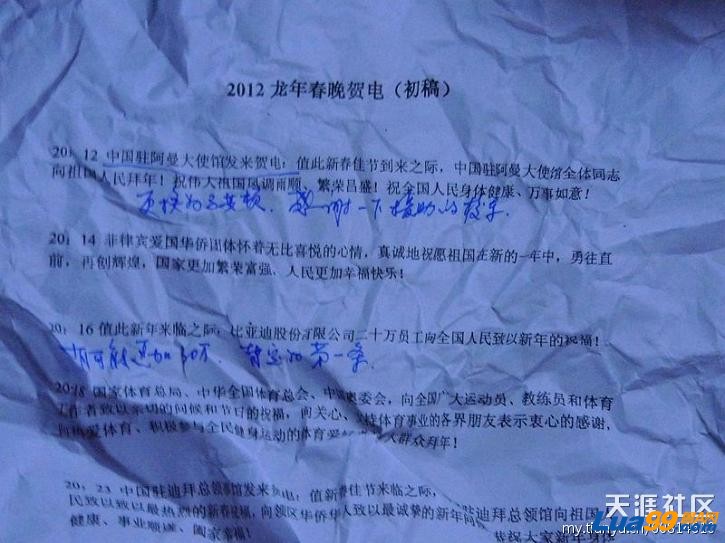 2012 龙年春晚贺电（初稿）
20：12 中国驻阿曼大使馆发来贺电：值此新春佳节到来之际，中国驻阿曼大使馆全体同志
向祖国人民拜年！祝伟大祖国风调雨顺、繁荣昌盛！祝全国人民身体健康、万事如意！
更换为
感谢一下援助的
20：14 菲律宾爱国华侨团体怀着无比喜悦的心情，真诚地祝愿祖国在新的一年中，勇往直
前，再创辉煌，国家更加繁荣富强、人民更加幸福快乐！
20：16 值此新年来临之际，比亚迪股份有限公司二十万员工向全国人民致以新年的祝福！
第一条
2018 国家体育总局、中华全国体育总会、中国奥委会，向全国广大运动员、教练员和体育
工作者致以亲切的问候和节日的祝福，向关心、支持体育事业的各界朋友表示衷心的感谢，
向热爱体育、积极参与全民健身运动的体育爱 人群众拜年！
20：23 中国驻迪拜总领事馆发来贺电：值新春佳节来临之际， 驻迪拜总领馆向祖国
民致以致以最热烈的新春祝福，向领区华侨华人致以最诚挚的新年问 恭祝大家新年身体
健康、事业顺遂、阖家幸福！
天涯社区
Lua99